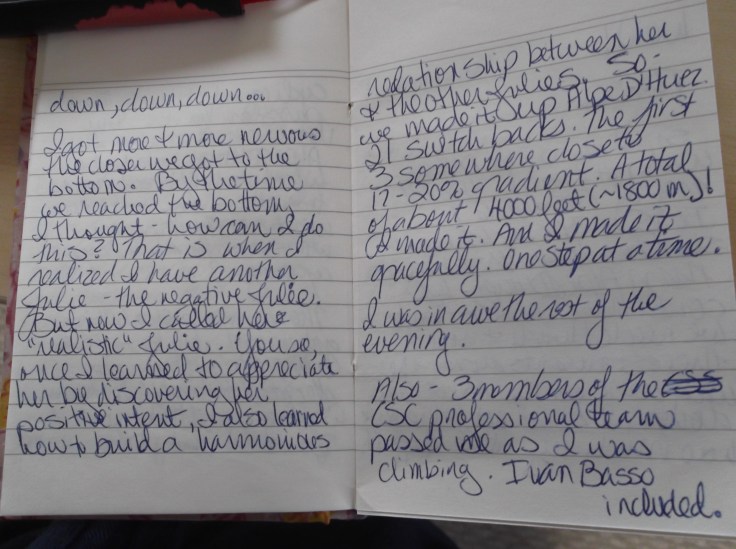 down, down, down...
I got more & more nervous
the closer we got to the
bottom. By the time
we reached the bottom,
I thought - how can I do
this? That is when I
realized I have another
Julie - the negative Julie.
But now I called here
"realistic" Julie. You see,
once I learned to appreciate
her be discovering her
positive intent, I also learned
how to build a harmonious
relationship between her
& the other Julies. So -
we made it up Alpe D'Huez.
21 switch backs. The first
3 somewhere close to
17-20% gradient. A total
of about 4000 feet (~1800 m)!
I made it. And I made it
gracefully. One step at a time.
I was in awe the rest of the
evening.
Also - 3 members of the
CSC professional team
passed me as I was
climbing. Ivan Basso
included.